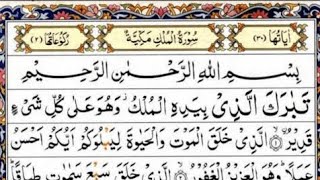 اٰيَاتُهَا (٣٠) سُوْرَةُ الْمُلْكِ مَكِّيَّةٌ رُكُوْعَاتُهَا (٢)
بِسْمِ اللّٰهِ الرَّحْمٰنِ الرَّحِيْمِ
تَبٰرَكَ الَّذِيْ بِيَدِهِ الْمُلْكُ وَهُوَ عَلٰى كُلِّ شَيْءٍ
قَدِيْرُ ۙ﴿١﴾ الَّذِيْ خَلَقَ الْمَوْتَ وَالْحَيٰوةَ لِيَبْلُوَكُمْ اَيُّكُمْ اَحْسَنُ
عَمَلًا ؕ وَهُوَ الْعَزِيْزُ الْغَفُوْرُ ۙ﴿٢﴾ الَّذِيْ خَلَقَ سَبْعَ سَمٰوٰتٍ طِبَاقًا ؕ